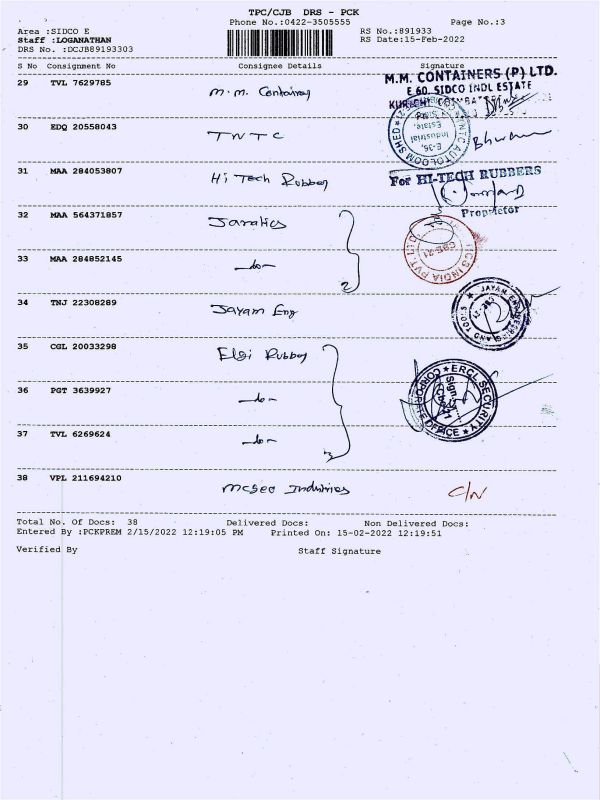 TPC/CJB DRS - PCK
Phone No.:0422-3505555 Page No.:3
Area :SIDCO E RS No.:891933
Staff :LOGANATHAN RS Date:15-Feb-2022
DRS No. :DCJB89193303
S No Consignment No Consignee Details Signature
29 TVL 7629785 M.M. Containers
M.M. CONTAINERS (P) LTD.
E 60, SIDCO INDL ESTATE
30 EDQ 20558043 TNTC
E-36, Industrial Estate,
31 MAA 284053807 Hi Tech Rubber
For HI-TECH RUBBERS
Proprietor
32 MAA 564371857
33 MAA 284852145 -do-
34 TNJ 22308289 Jayam Eng
35 CGL 20033298 Elgi Rubber
ERCL SECURITY
CORPORATE OFFICE
36 PGT 3639927 -do-
37 TVL 6269624 -do-
38 VPL 211694210 Industries C/N
Total No. Of Docs: 38 Delivered Docs: Non Delivered Docs:
Entered By :PCKPREM 2/15/2022 12:19:05 PM Printed On: 15-02-2022 12:19:51
Verified By Staff Signature